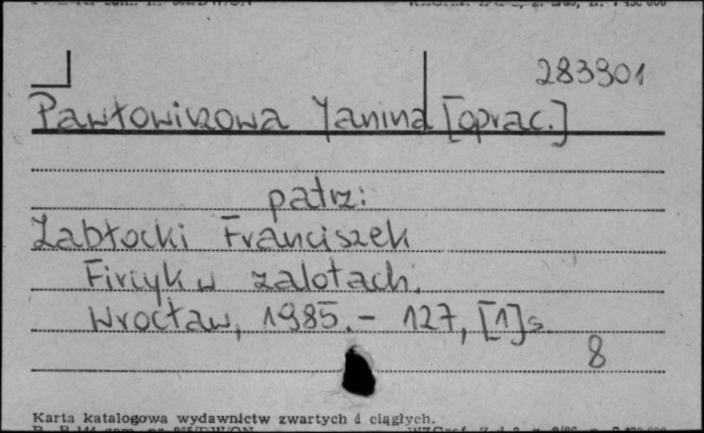 283901
Pawłowiczowa Janina [oprac.]
patrz:
Zabłocki Franciszek
Fircyk w zalotach.
Wrocław, 1985. - 127, [1] s.
8
Karta katalogowa wydawnictw zwartych i ciągłych.